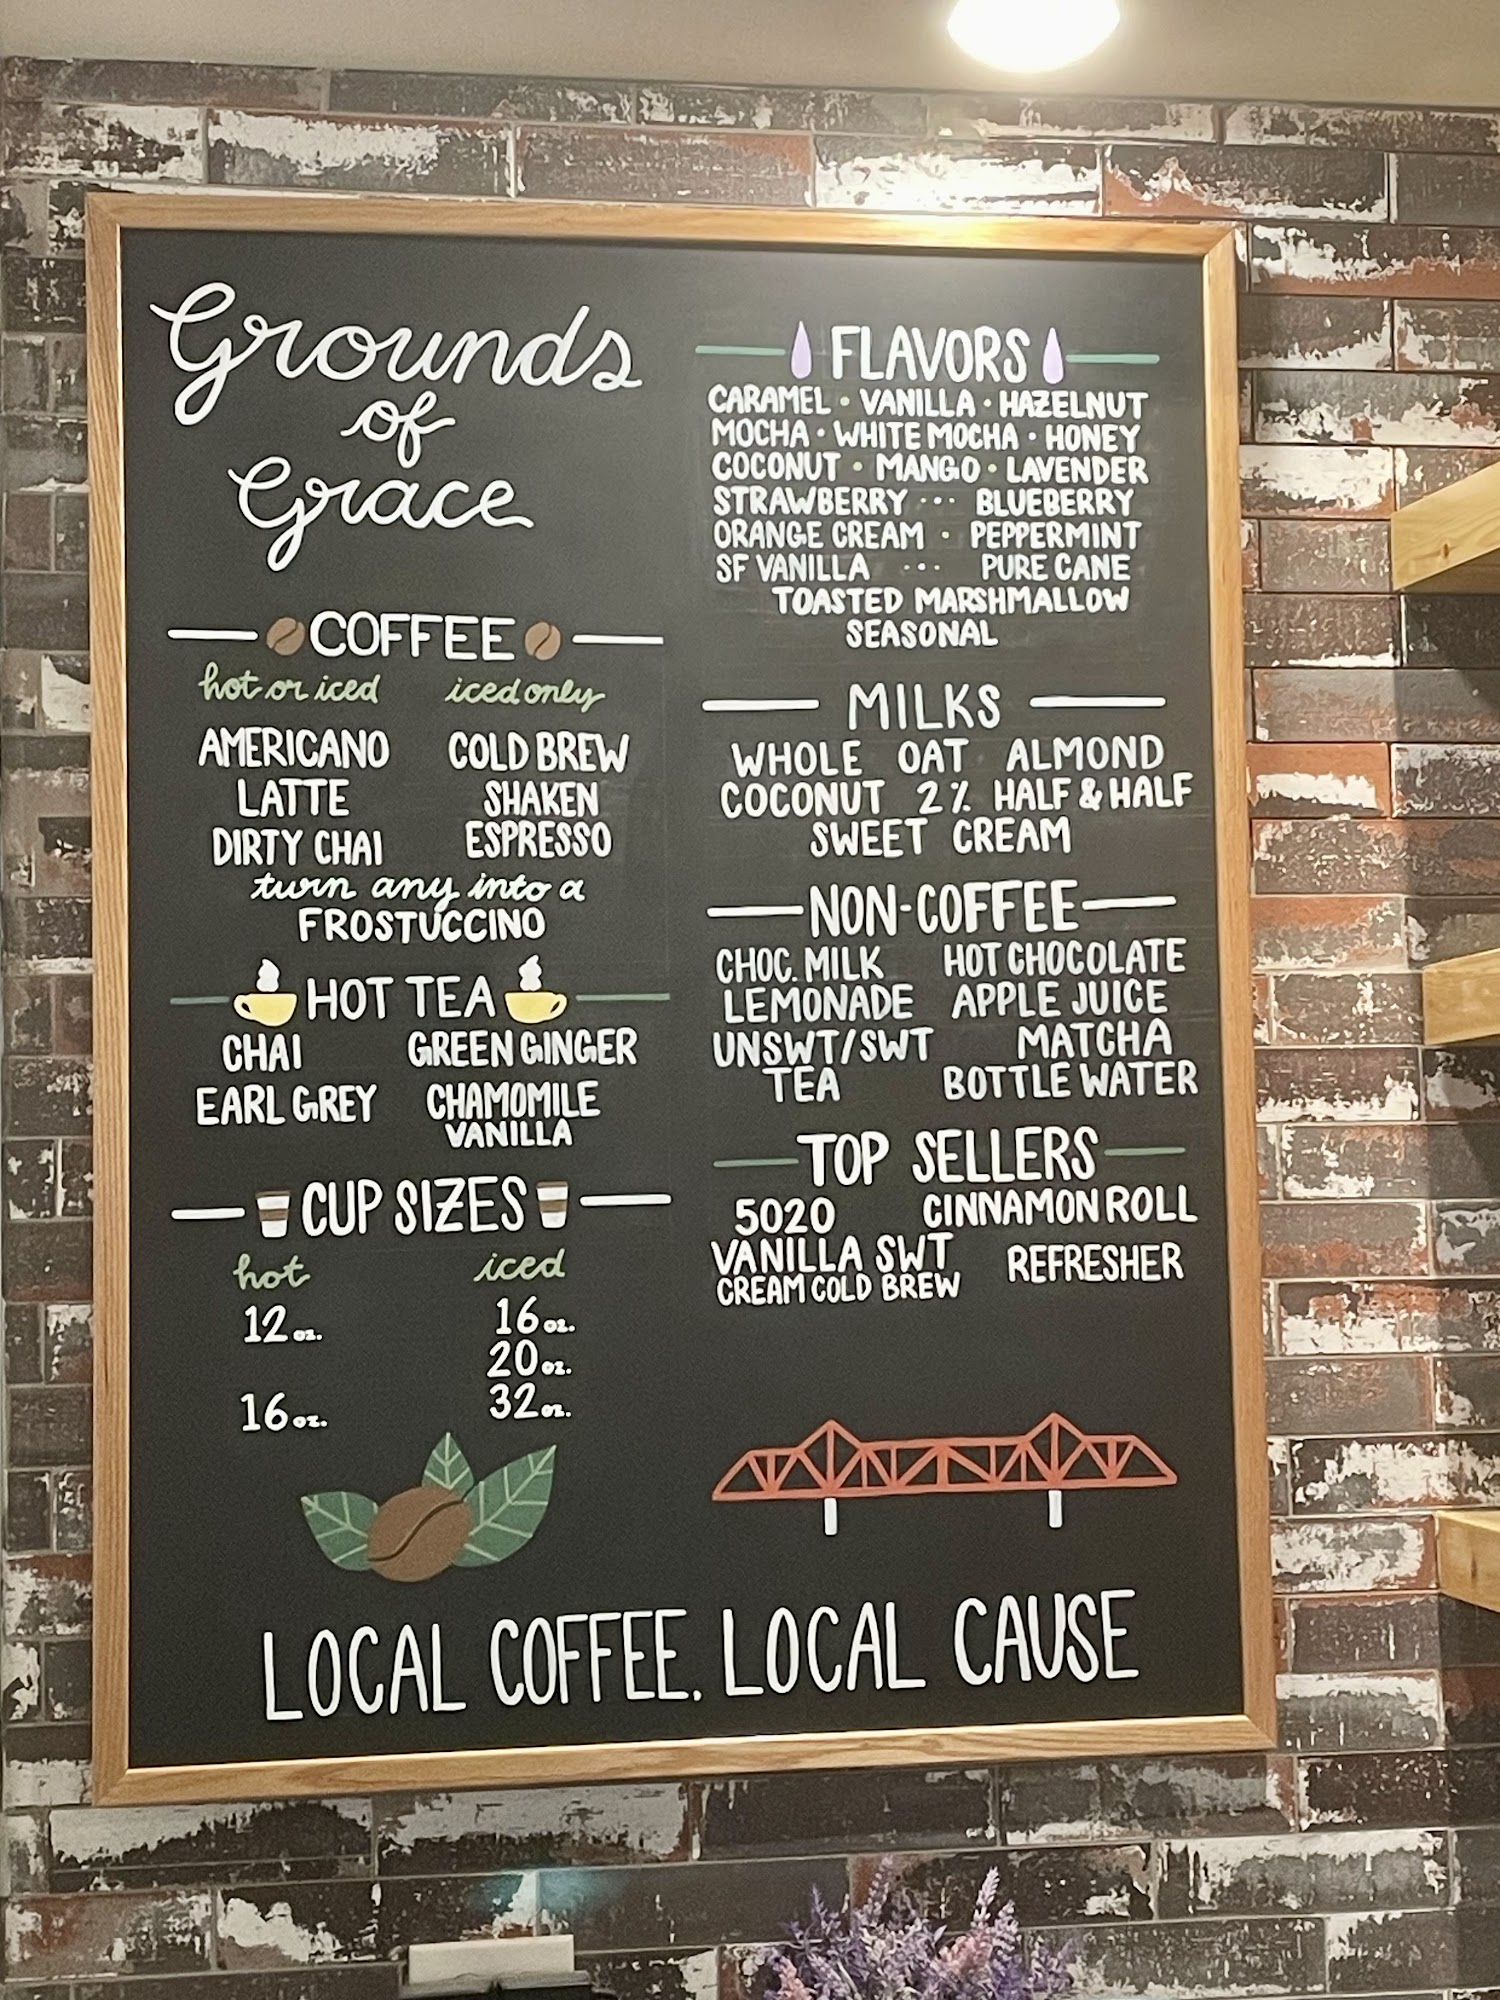 Grounds
of
Grace
COFFEE
hot or iced iced only
AMERICANO COLD BREW
LATTE SHAKEN
DIRTY CHAI ESPRESSO
turn any into a
FROSTUCCINO
HOT TEA
CHAI GREEN GINGER
EARL GREY CHAMOMILE
VANILLA
CUP SIZES
hot iced
12 oz. 16 oz.
20 oz.
16 oz. 32 oz.
FLAVORS
CARAMEL • VANILLA • HAZELNUT
MOCHA • WHITE MOCHA • HONEY
COCONUT • MANGO • LAVENDER
STRAWBERRY ••• BLUEBERRY
ORANGE CREAM • PEPPERMINT
SF VANILLA ••• PURE CANE
TOASTED MARSHMALLOW
SEASONAL
MILKS
WHOLE OAT ALMOND
COCONUT 2% HALF & HALF
SWEET CREAM
NON-COFFEE
CHOC. MILK HOT CHOCOLATE
LEMONADE APPLE JUICE
UNSWT/SWT MATCHA
TEA BOTTLE WATER
TOP SELLERS
5020 CINNAMON ROLL
VANILLA SWT REFRESHER
CREAM COLD BREW
LOCAL COFFEE. LOCAL CAUSE